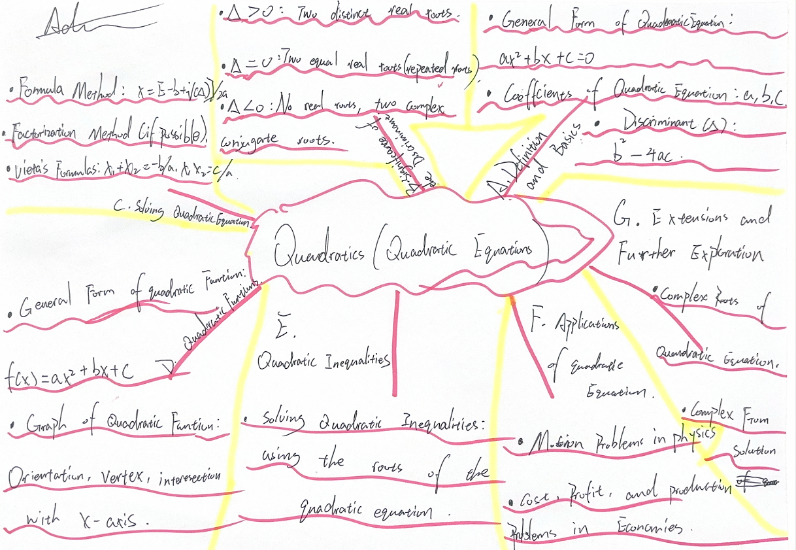 • Δ>0: Two distinct real roots.
• Δ=0: Two equal real roots (repeated roots).
• Δ<0: No real roots, two complex
conjugate roots.
B. Significance of
the Discriminant
• General Form of Quadratic Equation:
ax²+bx+c=0
• Coefficients of Quadratic Equation: a, b, c
• Discriminant (Δ):
b²-4ac.
A. Definition
and Basics
• Formula Method: x=[-b±√(Δ)]/2a
• Factorization Method (if possible).
• Vieta's Formulas: x₁+x₂=-b/a. x₁x₂=c/a.
C. Solving Quadratic Equation
Quadratics (Quadratic Equations)
G. Extensions and
Further Exploration
• Complex Roots of
Quadratic Equation.
• Complex From
Solution
• General Form of quadratic Funtion:
f(x)=ax²+bx+c
D
Quadratic Function
• Graph of Quadratic Funtion:
Orientation, vertex, intersection
with x-axis.
E.
Quadratic Inequalities
• Solving Quadratic Inequalities:
using the roots of the
quadratic equation.
F. Applications
of quadratic
Equation.
• Motion Problems in physics
• Cost, Profit, and production
Problems in Economies.